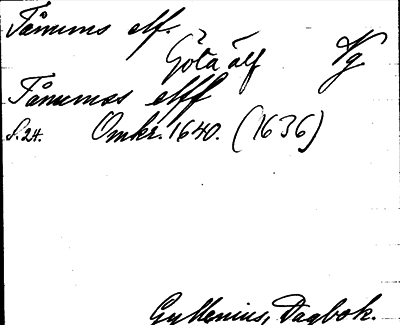 Tånums elf.
Göta älf Vg
Tånumas elff
S. 24. Omkr. 1640. (1636)
Gyllenius, Dagbok.